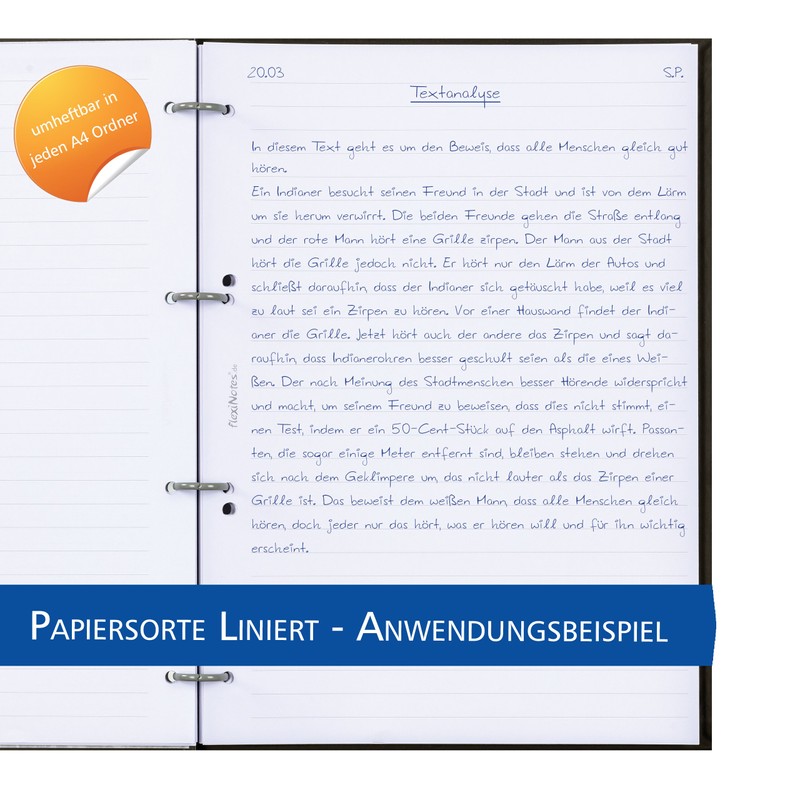 umheftbar in
jeden A4 Ordner
20.03 S.P.
Textanalyse
In diesem Text geht es um den Beweis, dass alle Menschen gleich gut
hören.
Ein Indianer besucht seinen Freund in der Stadt und ist von dem Lärm
um sie herum verwirrt. Die beiden Freunde gehen die Straße entlang
und der rote Mann hört eine Grille zirpen. Der Mann aus der Stadt
hört die Grille jedoch nicht. Er hört nur den Lärm der Autos und
schließt daraufhin, dass der Indianer sich getäuscht habe, weil es viel
zu laut sei ein Zirpen zu hören. Vor einer Hauswand findet der Indi-
aner die Grille. Jetzt hört auch der andere das Zirpen und sagt da-
raufhin, dass Indianerohren besser geschult seien als die eines Wei-
ßen. Der nach Meinung des Stadtmenschen besser Hörende widerspricht
und macht, um seinem Freund zu beweisen, dass dies nicht stimmt, ei-
nen Test, indem er ein 50-Cent-Stück auf den Asphalt wirft. Passan-
ten, die sogar einige Meter entfernt sind, bleiben stehen und drehen
sich nach dem Geklimpere um, das nicht lauter als das Zirpen einer
Grille ist. Das beweist dem weißen Mann, dass alle Menschen gleich
hören, doch jeder nur das hört, was er hören will und für ihn wichtig
erscheint.
flexiNotes®.de
PAPIERSORTE LINIERT - ANWENDUNGSBEISPIEL